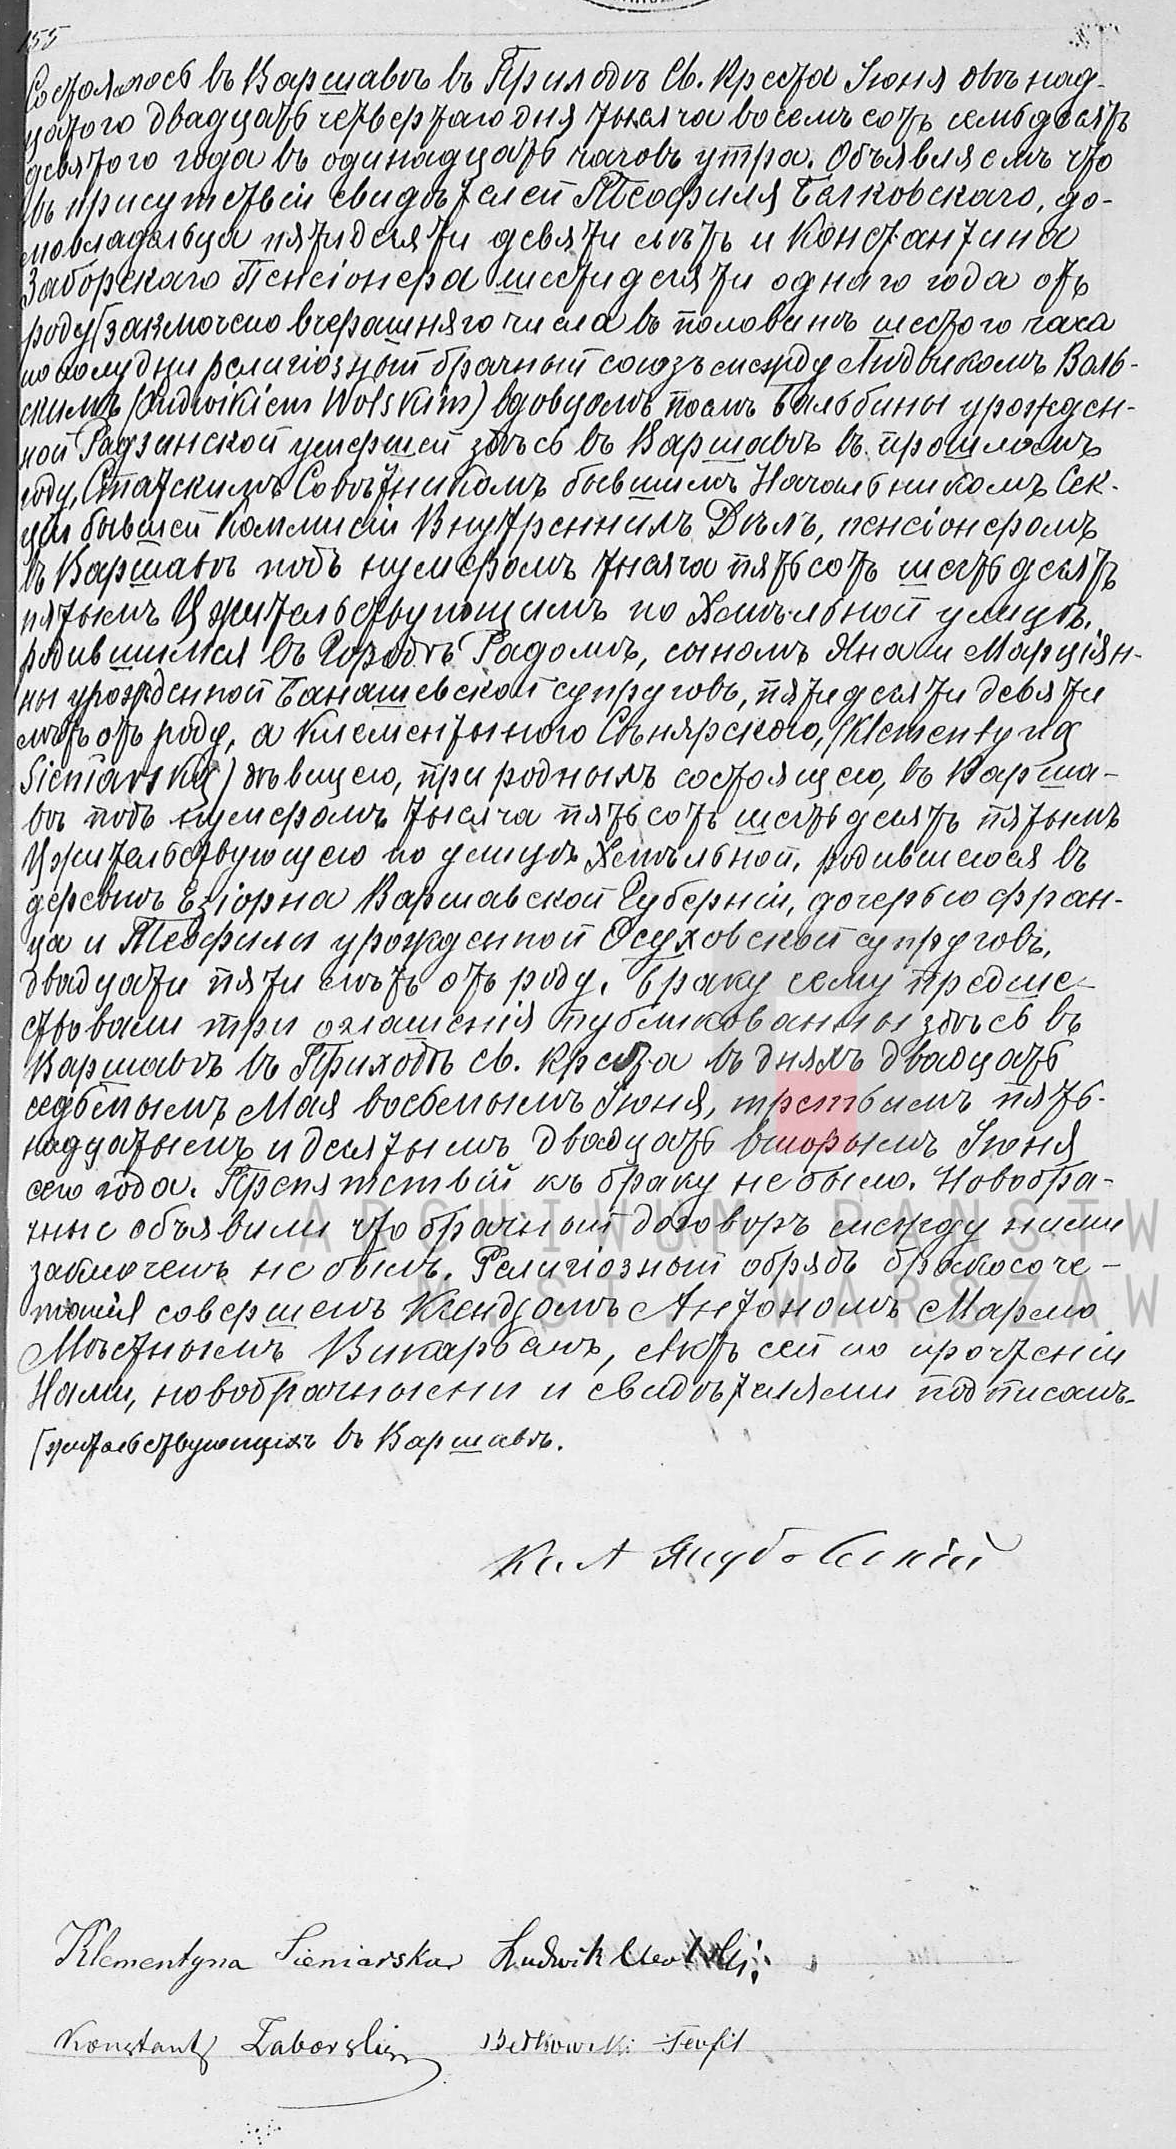 155
Состоялось въ Варшавѣ въ Приходѣ Св. Креста Іюня двѣнад-
цатого двадцать четвертаго дня тысяча восемьсотъ семьдесятъ
девятого года въ одинадцать часовъ утра. Объявляемъ что
въ присутствіи свидѣтелей Теофиля Бетковскаго, до-
мовладѣльца пятидесяти девяти лѣтъ и Константина
Заборскаго Пенсіонера шестидесяти однаго года отъ
роду [заключено вчерашняго числа въ половинѣ шестого часа
по полудни религіозный брачный союзъ между Людвикомъ Воль-
скимъ (Ludwikiem Wolskim) вдовцомъ послѣ Бальбины урожден-
ной Радзинской умершей здѣсь въ Варшавѣ въ прошломъ
году, Статскимъ Совѣтникомъ бывшимъ Начальникомъ Сек-
ціи бывшей Коммисіи Внутреннихъ Дѣлъ, пенсіонеромъ
въ Варшавѣ подъ нумеромъ тысяча пятьсотъ шестьдесятъ
пятымъ Ц жительствующимъ по Хмѣльной улицѣ,
родившимся въ Городѣ Радомѣ, сыномъ Яна и Марціян-
ны урожденной Банашевской супруговъ, пятидесяти девяти
лѣтъ отъ роду, а Клементыною Сѣнярскою, (Klementyną
Sieniarską) дѣвицею, при родныхъ состоящею, въ Варша-
вѣ подъ нумеромъ тысяча пятьсотъ шестьдесятъ пятымъ
Ц жительствующею по улицѣ Хмѣльной, родившеюся въ
деревнѣ Езіорна Варшавской Губерніи, дочерью Фран-
ца и Теофили урожденной Осуховской супруговъ,
двадцати пяти лѣтъ отъ роду. Браку сему предше-
ствовали три оглашенія публикованны здѣсь въ
Варшавѣ въ Приходѣ Св. Креста въ дняхъ двадцать
седьмымъ Мая восьмымъ Іюня, третьимъ пять-
надцатымъ и десятымъ двадцать вторымъ Іюня
сего года. Препятствій къ браку не было. Новобра-
чные объявили что брачный договоръ между ними
заключенъ не былъ. Религіозный обрядъ бракосоче-
танія совершенъ Ксендзомъ Антономъ Мармо
Мѣстнымъ Викарьемъ, Актъ сей по прочтеніи
Нами, новобрачными и свидѣтелями подписанъ.
[жительствующихъ въ Варшавѣ.
Кс. А Якубовскій
Klementyna Sieniarska Ludwik Wolski
Konstanty Zaborski Betkowski Teofil
ARCHIWUM PAŃSTW
M.ST. WARSZAW